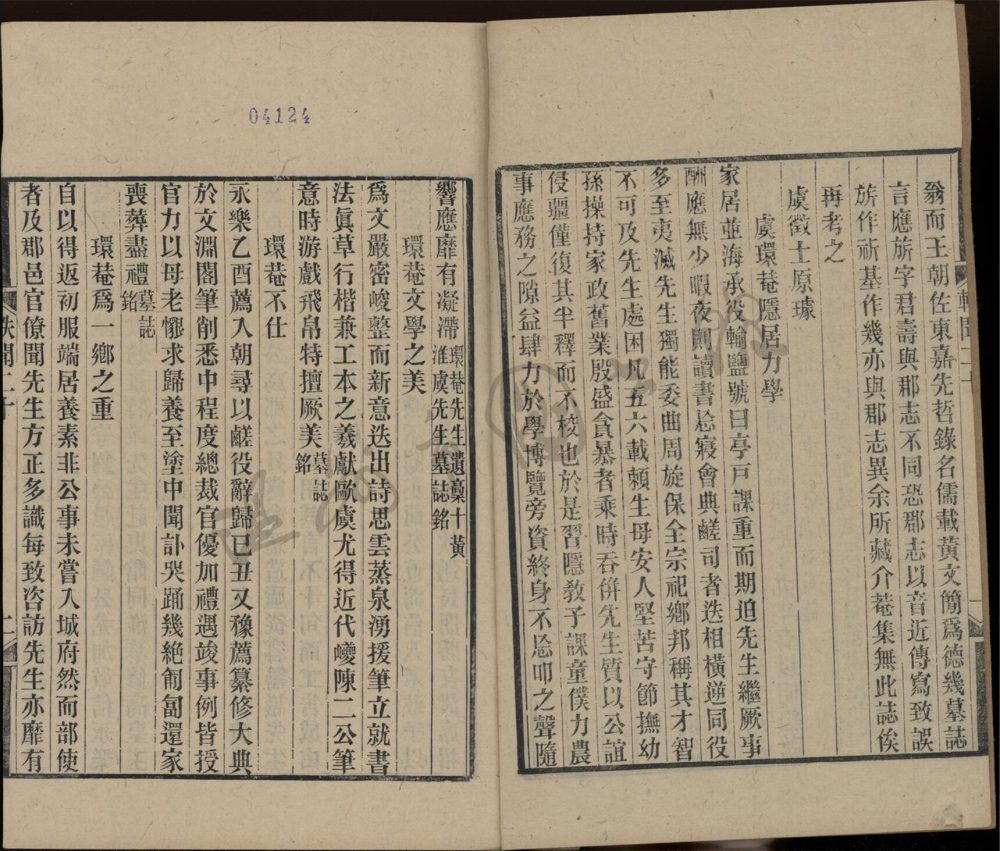 翁而王朝佐東嘉先哲錄名儒載黃文簡爲德幾墓誌
言應旂字君壽與郡志不同恐郡志以音近傳寫致誤
旂作祈基作幾亦與郡志異余所藏介菴集無此誌俟
再考之
虞徵士原璩
虞環菴隱居力學
家居並海承役輸鹽號曰亭戸課重而期迫先生繼厥事
酬應無少暇夜則讀書忘寢會典鹺司者迭相橫逆同役
多至夷滅先生獨能委曲周旋保全宗祀鄉邦稱其才智
不可及先生處困凡五六載賴生母安人堅苦守節撫幼
孫操持家政舊業殷盛貪暴者乘時吞併先生質以公誼
侵疆僅復其半釋而不校也於是習隱敎子課童僕力農
事應務之隙益肆力於學博覽旁資終身不忘叩之聲隨
響應靡有凝滯環菴先生遺稾十黃淮虞先生墓誌銘
環菴文學之美
爲文嚴密峻整而新意迭出詩思雲蒸泉湧援筆立就書
法眞草行楷兼工本之羲獻歐虞尤得近代夔陳二公筆
意時游戲飛帛特擅厥美墓誌銘
環菴不仕
永樂乙酉薦入朝尋以鹺役辭歸已丑又豫薦纂修大典
於文淵閣筆削悉中程度總裁官優加禮遇竣事例皆授
官力以母老懇求歸養至塗中聞訃哭踊幾絶匍匐還家
喪葬盡禮墓誌銘
環菴爲一鄉之重
自以得返初服端居養素非公事未嘗入城府然而部使
者及郡邑官僚聞先生方正多識每致咨訪先生亦靡有
軼聞二十
一
軼聞二十
二
04124